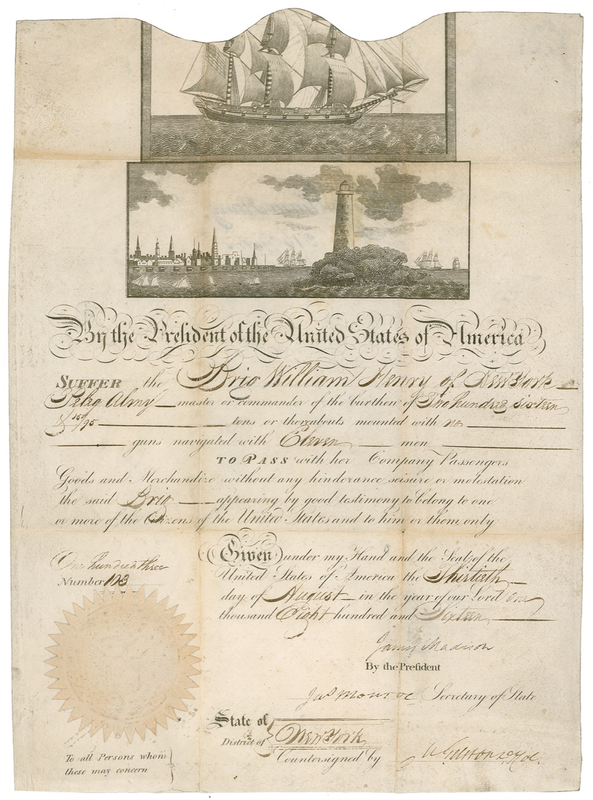 By the President of the United States of America
SUFFER the Brig William Henry of New York
Almy master or commander of the burthen of Two hundred sixteen
& /95 tons or thereabouts mounted with no
guns navigated with Eleven men
TO PASS with her Company Passengers
Goods and Merchandize without any hinderance seisure or molestation
the said Brig appearing by good testimony to belong to one
or more of the Citizens of the United States and to him or them only
Given under my Hand and the Seal of the
United States of America the Thirtieth
day of August in the year of our Lord one
thousand Eight hundred and Sixteen
One hundred three
Number 103
James Madison
By the President
Jas Monroe Secretary of State
State of
District of New York
Countersigned by
To all Persons whom
these may concern